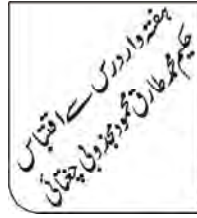 ہفتہ وار درس سے اقتباس
حکیم محمد طارق محمود مجذوبی چغتائی